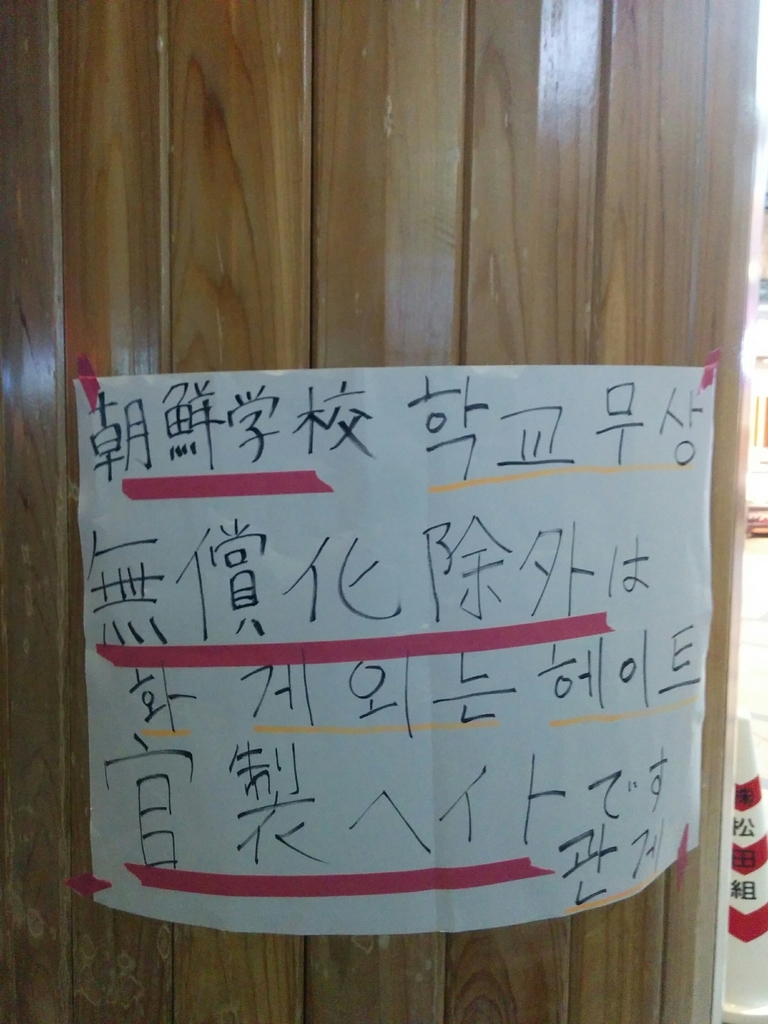 朝鮮学校 학교 무상
無償化除外は
화 게외는 헤이트
官製ヘイトです
관게
松
田
組